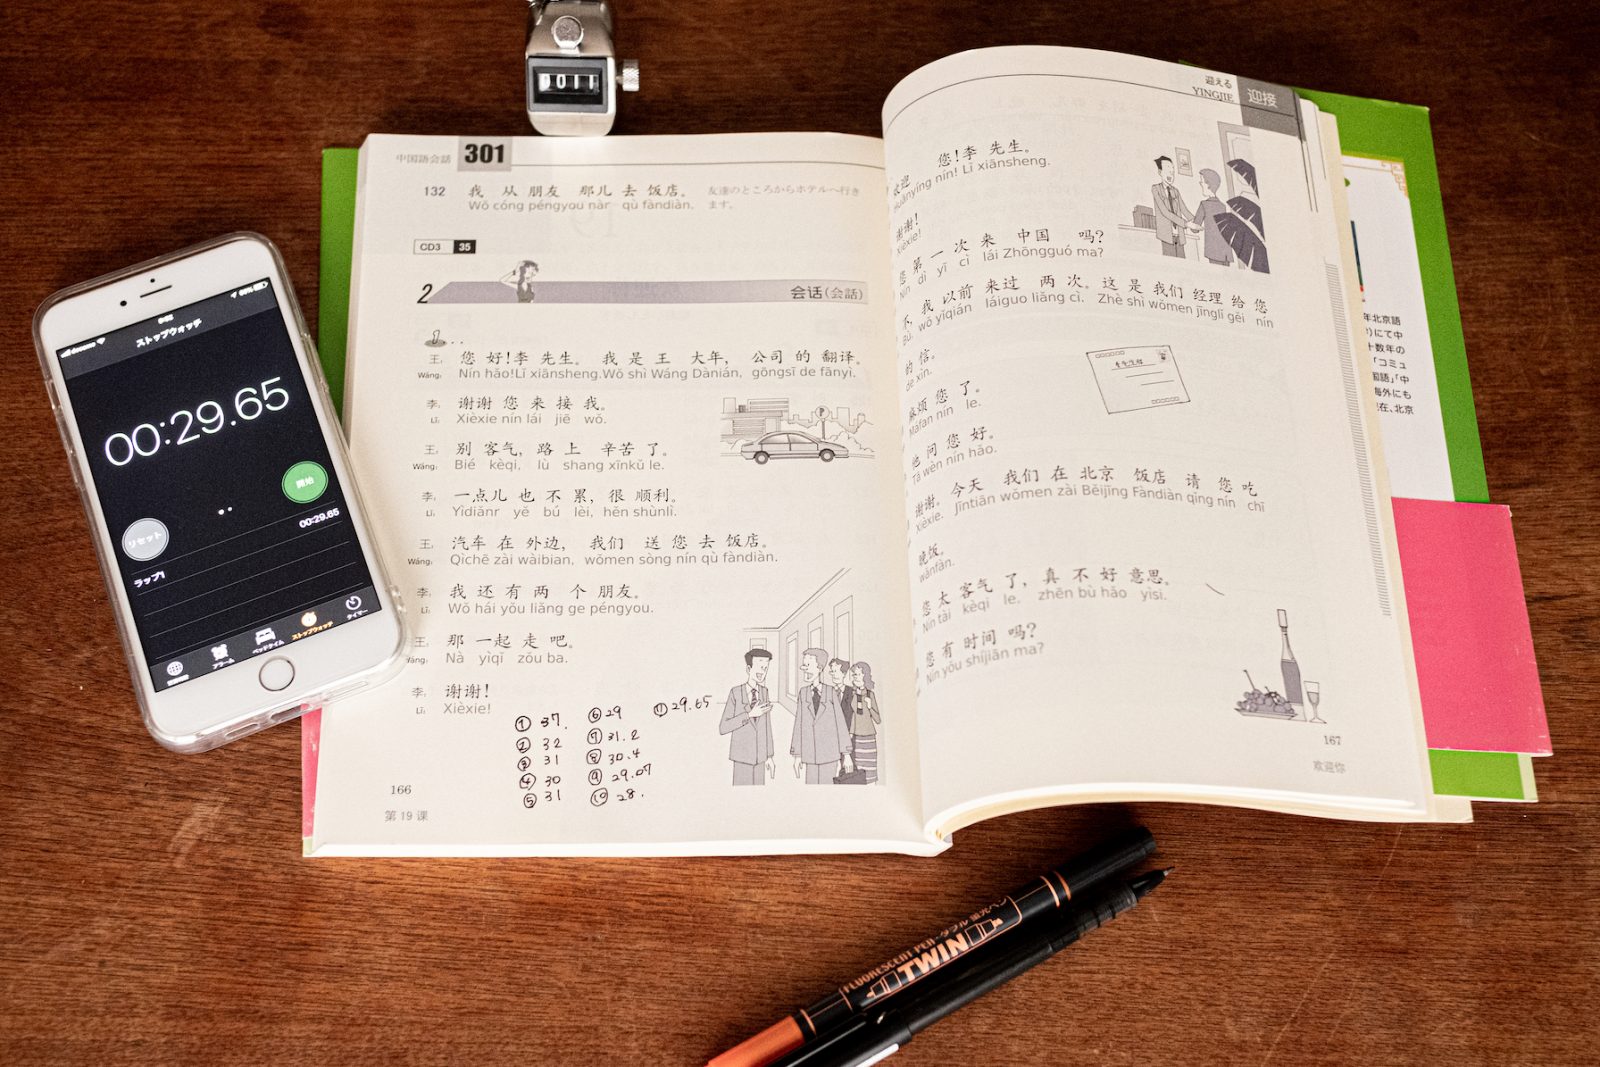 0011
中国語会話 301
132 我 从 朋友 那儿 去 饭店。 友達のところからホテルへ行き
Wǒ cóng péngyou nàr qù fàndiàn. ます。
CD3 35
2 会话(会話)
王: 您 好!李 先生。 我 是 王 大年, 公司 的 翻译。
Wáng: Nín hǎo!Lǐ xiānsheng.Wǒ shì Wáng Dànián, gōngsī de fānyì.
李: 谢谢 您 来 接 我。
Lǐ: Xièxie nín lái jiē wǒ.
王: 别 客气, 路 上 辛苦 了。
Wáng: Bié kèqi, lù shang xīnkǔ le.
李: 一点儿 也 不 累, 很 顺利。
Lǐ: Yìdiǎnr yě bú lèi, hěn shùnlì.
王: 汽车 在 外边, 我们 送 您 去 饭店。
Wáng: Qìchē zài wàibian, wǒmen sòng nín qù fàndiàn.
李: 我 还 有 两 个 朋友。
Lǐ: Wǒ hái yǒu liǎng ge péngyou.
王: 那 一起 走 吧。
Wáng: Nà yìqǐ zǒu ba.
李: 谢谢!
Lǐ: Xièxie!
① 37.
② 32
③ 31
④ 30
⑤ 31
⑥ 29
⑦ 31.2
⑧ 30.4
⑨ 29.07
⑩ 28.
⑪ 29.65
166
第 19 课
迎える
YINGJIE 迎接
欢迎 您!李 先生。
Huānyíng nín! Lǐ xiānsheng.
谢谢!
Xièxie!
您 第 一 次 来 中国 吗?
Nín dì yī cì lái Zhōngguó ma?
不, 我 以前 来过 两 次。这 是 我们 经理 给 您
Bù, wǒ yǐqián láiguo liǎng cì. Zhè shì wǒmen jīnglǐ gěi nín
的 信。
de xìn.
麻烦 您 了。
Máfan nín le.
他 问 您 好。
Tā wèn nín hǎo.
谢谢。今天 我们 在 北京 饭店 请 您 吃
Xièxie. Jīntiān wǒmen zài Běijīng Fàndiàn qǐng nín chī
晚饭。
wǎnfàn.
您 太 客气 了, 真 不 好 意思。
Nín tài kèqi le, zhēn bù hǎo yìsi.
您 有 时间 吗?
Nín yǒu shíjiān ma?
167
欢迎你
年北京語
)にて中
十数年の
「コミュ
国語」「中
海外にも
在、北京
docomo
ストップウォッチ
00:29.65
開始
リセット
00:29.65
ラップ1
アラーム
ベッドタイム
ストップウォッチ
タイマー
FLUORESCENT PEN・ダブル 蛍光ペン
TWIN